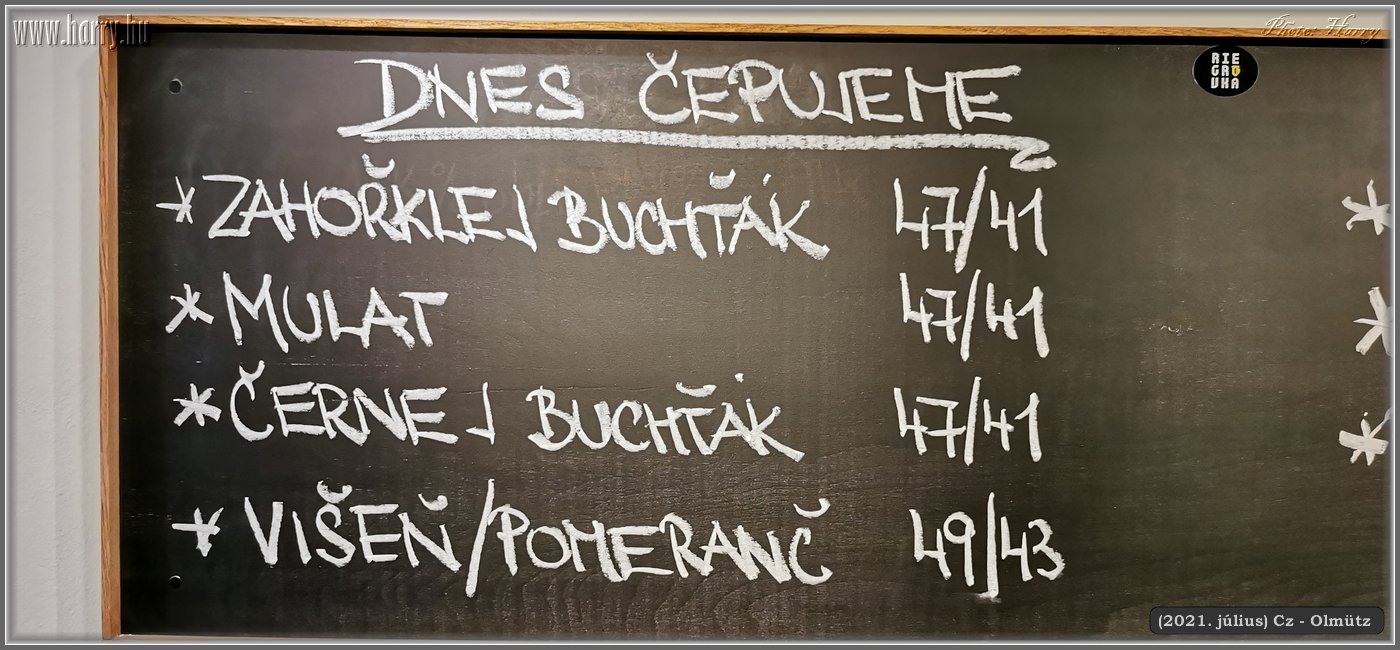 www.harry.hu
Photo: Harry
RIE
GRO
VKA
DNES ČEPUJEME
* ZAHOŘKLEJ BUCHŤÁK 47/41
* MULAT 47/41
* ČERNEJ BUCHŤÁK 47/41
* VIŠEŇ/POMERANČ 49/43
(2021. július) Cz - Olmütz